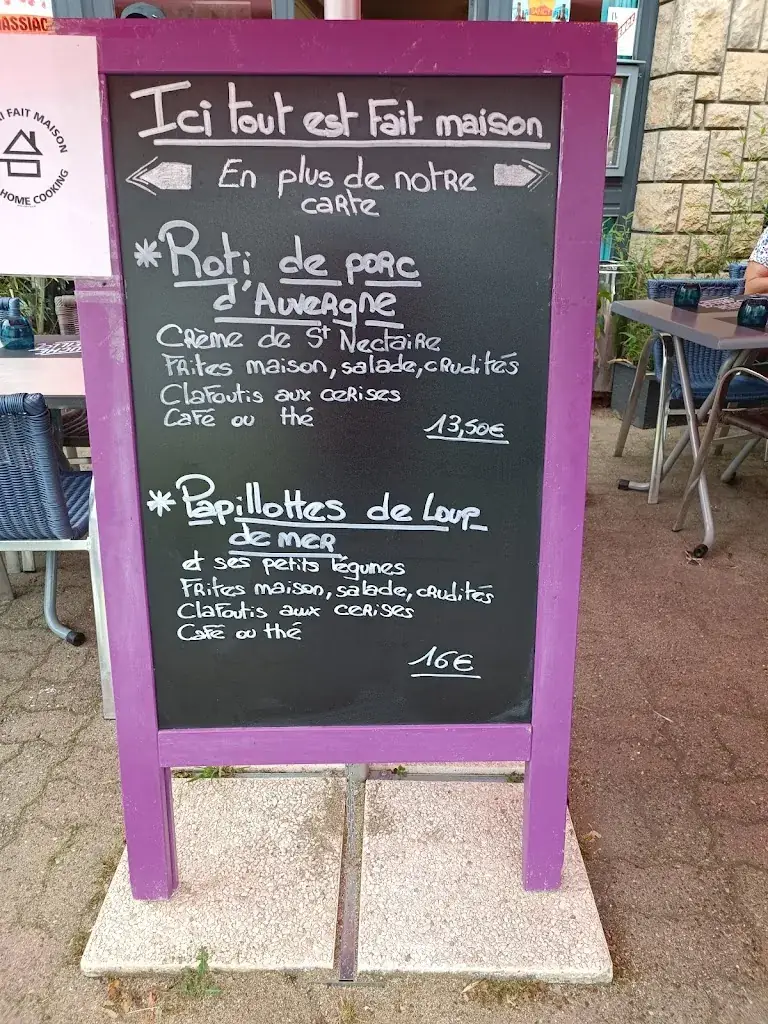 MASSIAC
FAIT MAISON
HOME COOKING
Ici tout est Fait maison
En plus de notre
carte
* Roti de porc
d'Auvergne
Crème de St Nectaire
Frites maison, salade, crudités
Clafoutis aux cerises
Café ou thé
13,50€
* Papillottes de Loup
de mer
et ses petits légumes
Frites maison, salade, crudités
Clafoutis aux cerises
Café ou thé
16€